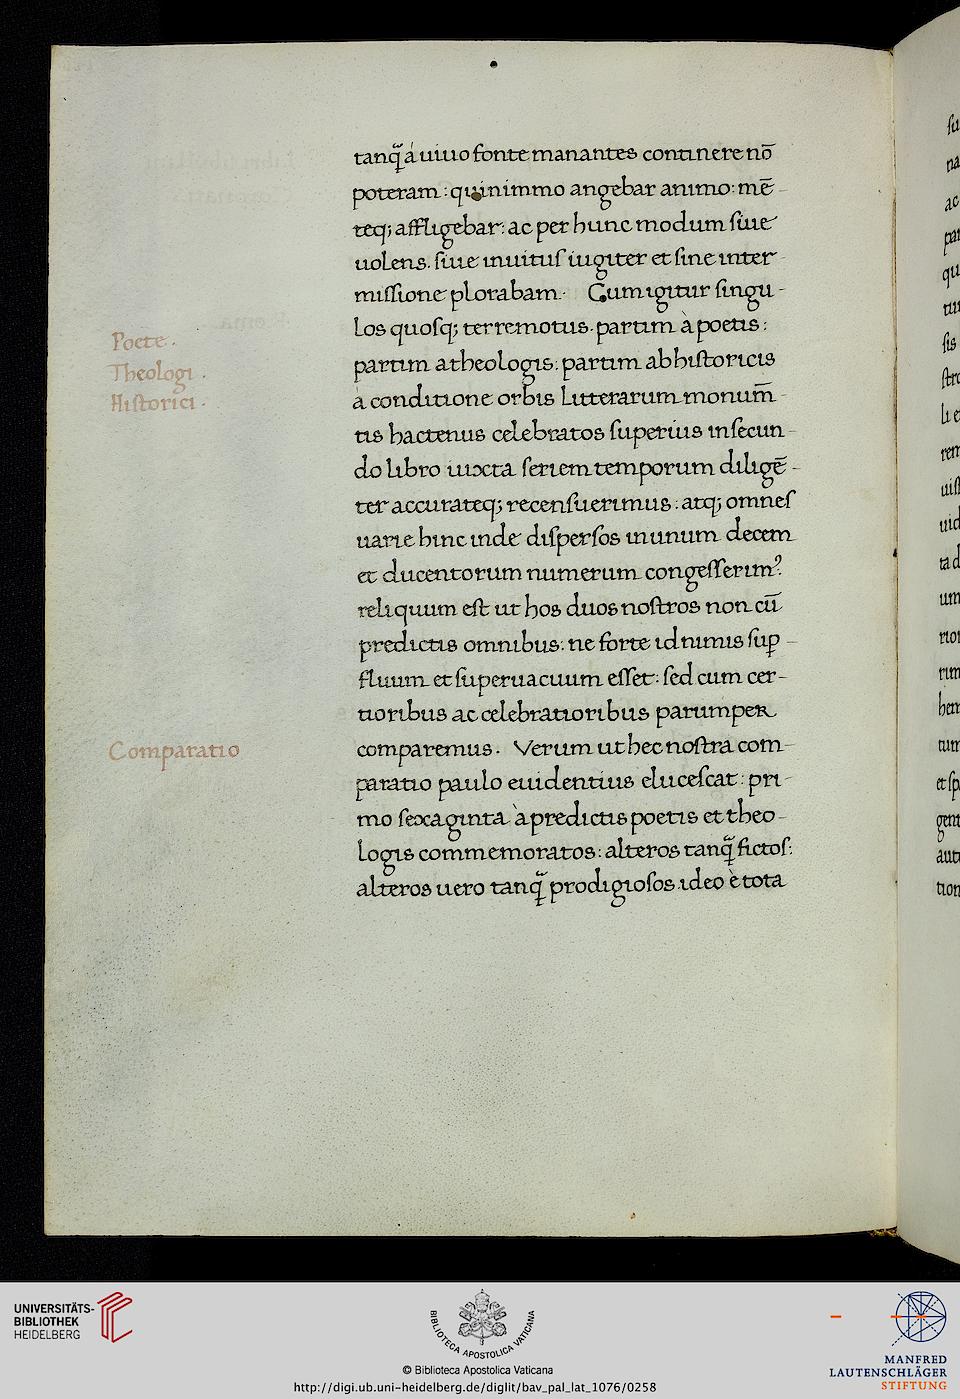 tanq̃ á uiuo fonte manantes continere nō
poteram : quinimmo angebar animo : mē-
teq; affligebar : ac per hunc modum ſiue
uolens . ſiue inuituſ iugiter et ſine inter-
miſſione plorabam · Cum igitur ſingu-
los quoſq; terremotus . partim à poetis :
Poete .
partim a theologis : partim ab hiſtoricis
Theologi .
à conditione orbis litterarum monum̄-
Hiſtorici .
tis hactenus celebratos ſuperius in ſecun-
do libro iuxta ſeriem temporum diligē-
ter accurateq; recenſuerimus : atq; omneſ
uarie hinc inde diſperſos in unum decem
et ducentorum numerum congeſſerimꝰ.
reliquum eſt ut hos duos noſtros non cū
predictis omnibus : ne forte id nimis ſuꝑ-
fluum et ſuperuacuum eſſet : ſed cum cer-
tioribus ac celebratioribus parumper
comparemus . Verum ut hec noſtra com-
Comparatio
paratio paulo euidentius eluceſcat : pri-
mo ſexaginta à predictis poetis et theo-
logis commemoratos : alteros tanq̃ fictoſ :
alteros uero tanq̃ prodigioſos ideo è tota
UNIVERSITÄTS-
BIBLIOTHEK
HEIDELBERG
BIBLIOTECA APOSTOLICA VATICANA
© Biblioteca Apostolica Vaticana
http://digi.ub.uni-heidelberg.de/diglit/bav_pal_lat_1076/0258
MANFRED
LAUTENSCHLÄGER
STIFTUNG